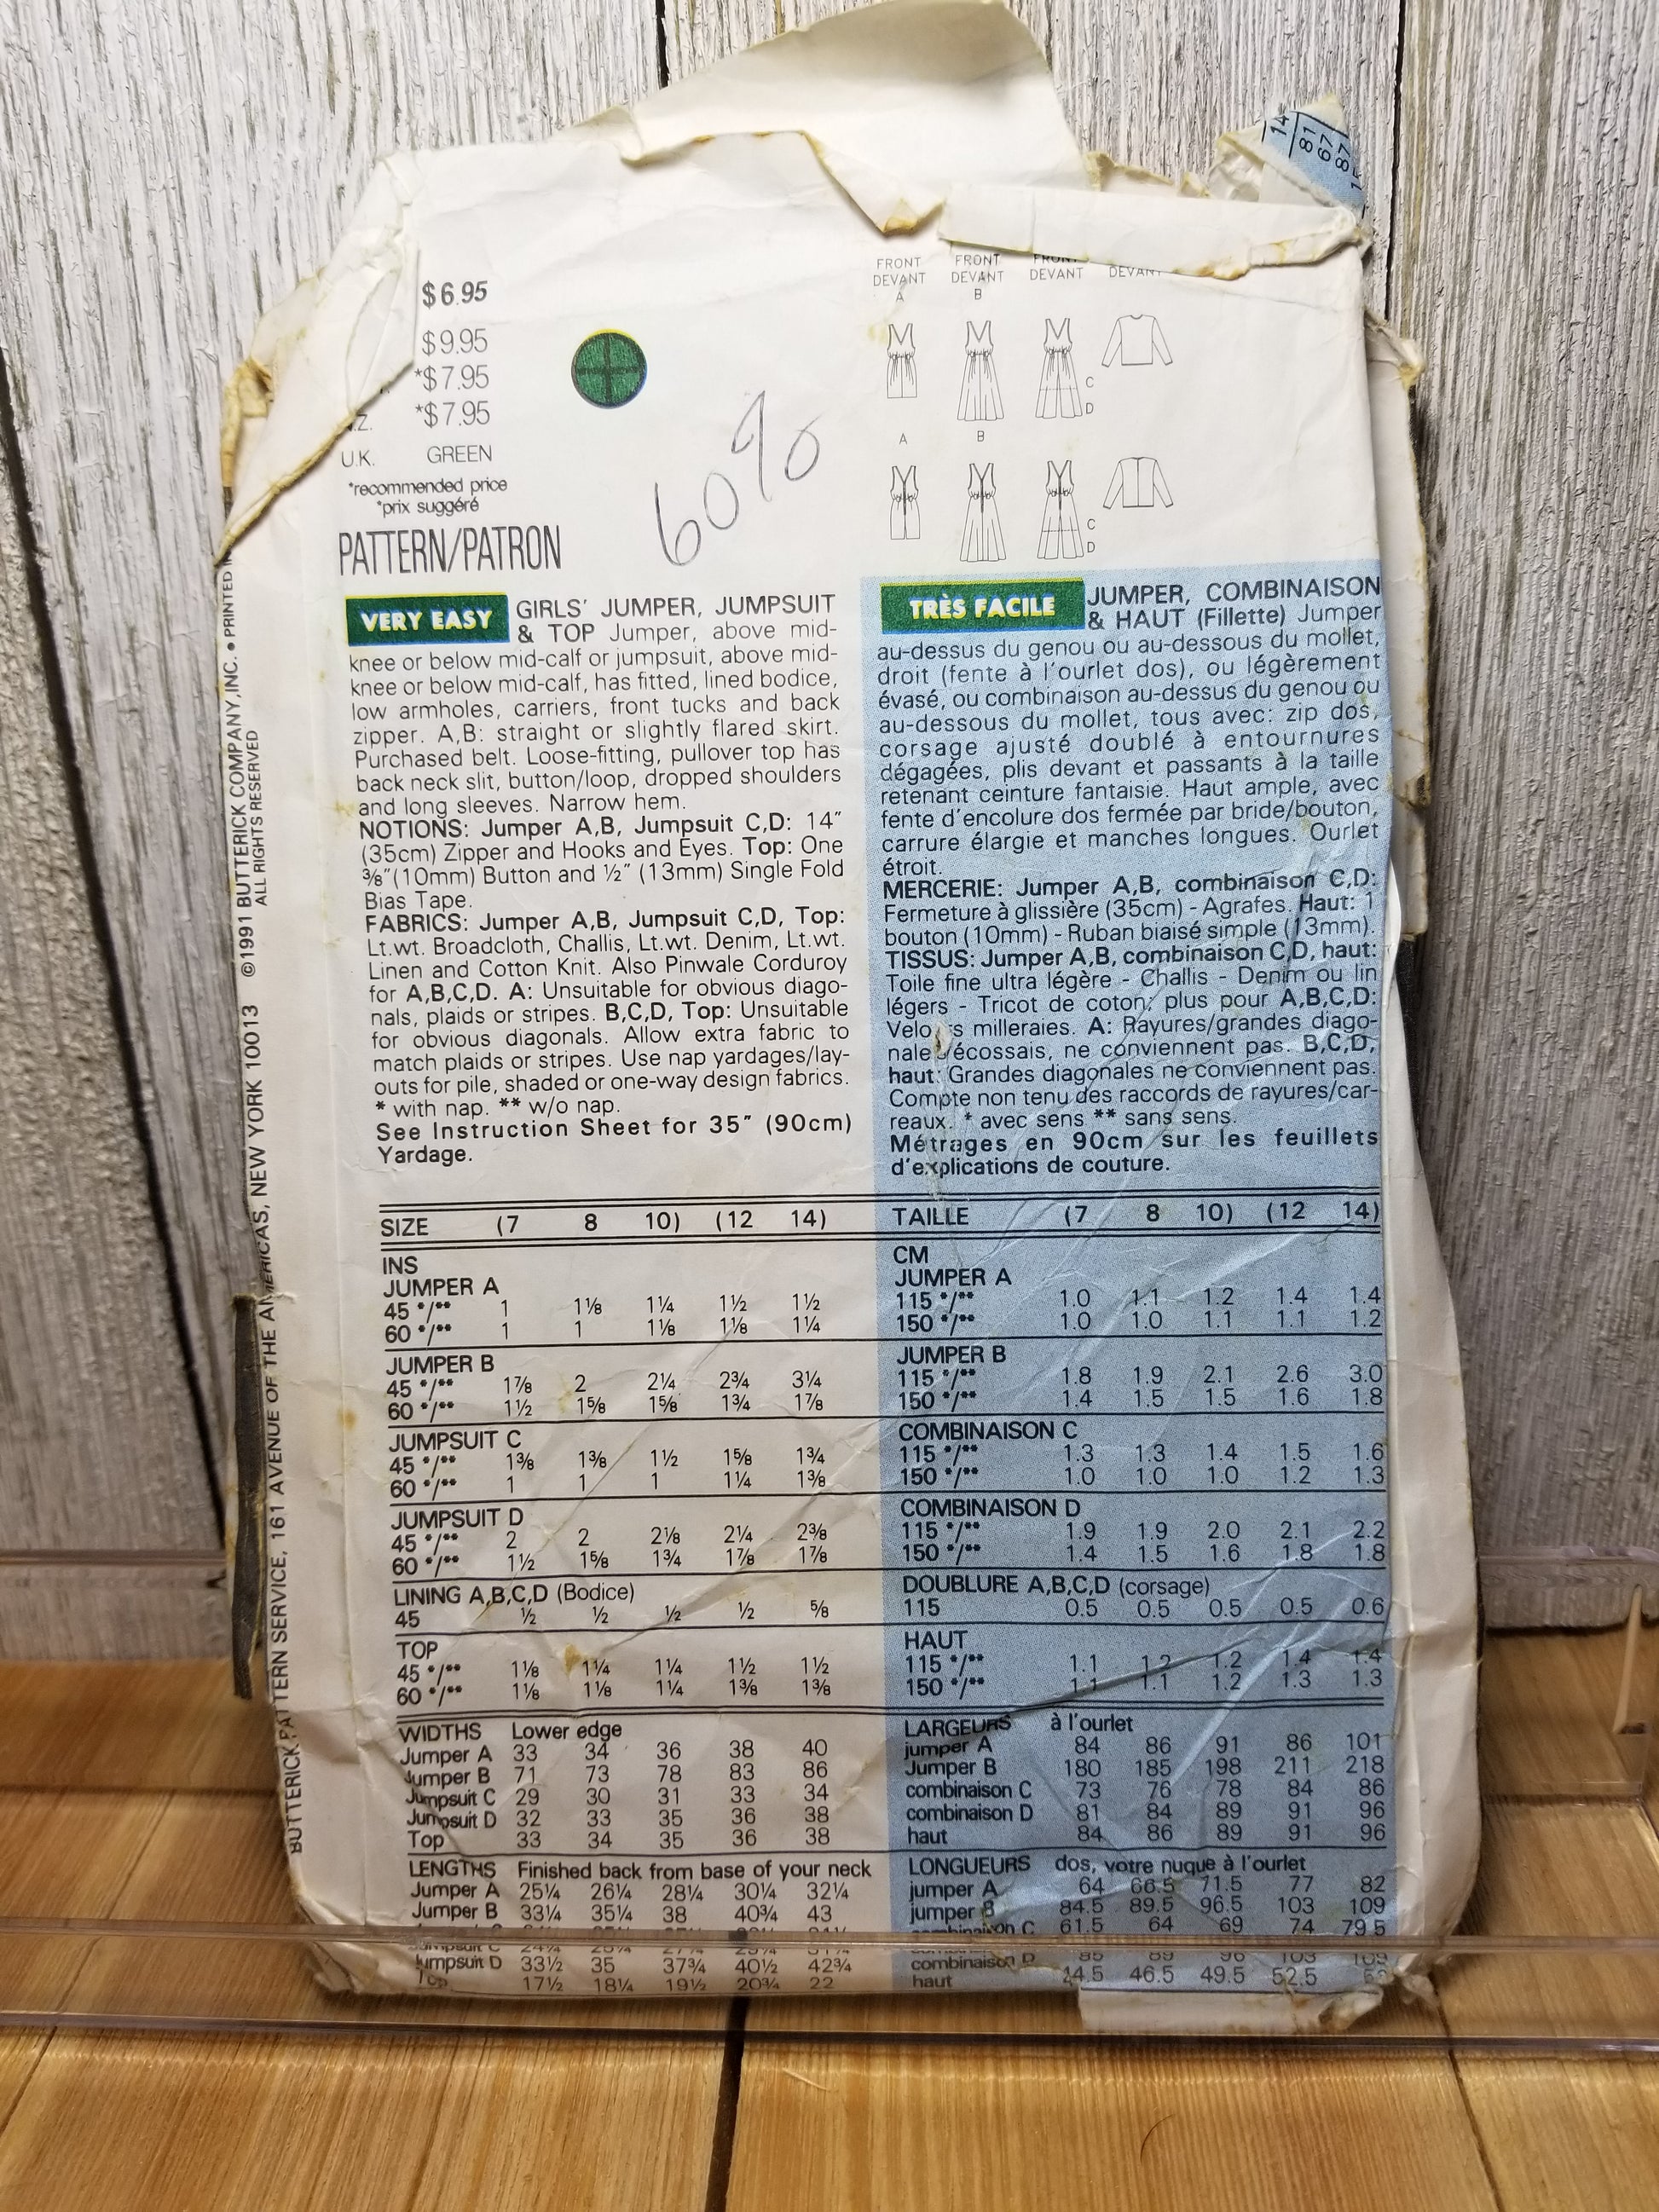 14
81
67
87
$6.95
$9.95
*$7.95
.Z. *$7.95
U.K. GREEN
*recommended price
*prix suggéré
PATTERN/PATRON
60%
FRONT FRONT FRONT
DEVANT DEVANT DEVANT DEVANT
A B
C
D
A B
C
D
VERY EASY GIRLS' JUMPER, JUMPSUIT
& TOP Jumper, above mid-
knee or below mid-calf or jumpsuit, above mid-
knee or below mid-calf, has fitted, lined bodice,
low armholes, carriers, front tucks and back
zipper. A,B: straight or slightly flared skirt.
Purchased belt. Loose-fitting, pullover top has
back neck slit, button/loop, dropped shoulders
and long sleeves. Narrow hem.
NOTIONS: Jumper A,B, Jumpsuit C,D: 14"
(35cm) Zipper and Hooks and Eyes. Top: One
⅜"(10mm) Button and ½" (13mm) Single Fold
Bias Tape.
FABRICS: Jumper A,B, Jumpsuit C,D, Top:
Lt.wt. Broadcloth, Challis, Lt.wt. Denim, Lt.wt.
Linen and Cotton Knit. Also Pinwale Corduroy
for A,B,C,D. A: Unsuitable for obvious diago-
nals, plaids or stripes. B,C,D, Top: Unsuitable
for obvious diagonals. Allow extra fabric to
match plaids or stripes. Use nap yardages/lay-
outs for pile, shaded or one-way design fabrics.
* with nap. ** w/o nap.
See Instruction Sheet for 35" (90cm)
Yardage.
TRÈS FACILE JUMPER, COMBINAISON
& HAUT (Fillette) Jumper
au-dessus du genou ou au-dessous du mollet,
droit (fente à l'ourlet dos), ou légèrement
évasé, ou combinaison au-dessus du genou ou
au-dessous du mollet, tous avec: zip dos,
corsage ajusté doublé à entournures
dégagées, plis devant et passants à la taille
retenant ceinture fantaisie. Haut ample, avec
fente d'encolure dos fermée par bride/bouton,
carrure élargie et manches longues. Ourlet
étroit.
MERCERIE: Jumper A,B, combinaison C,D:
Fermeture à glissière (35cm) - Agrafes. Haut: 1
bouton (10mm) - Ruban biaisé simple (13mm).
TISSUS: Jumper A,B, combinaison C,D, haut:
Toile fine ultra légère - Challis - Denim ou lin
légers - Tricot de coton; plus pour A,B,C,D:
Velo s milleraies. A: Rayures/grandes diago-
nale /écossais, ne conviennent pas. B,C,D,
haut: Grandes diagonales ne conviennent pas.
Compte non tenu des raccords de rayures/car-
reaux. * avec sens ** sans sens.
Métrages en 90cm sur les feuillets
d'explications de couture.
SIZE (7 8 10) (12 14)
INS
JUMPER A
45 */** 1 1⅛ 1¼ 1½ 1½
60 */** 1 1 1⅛ 1⅛ 1¼
JUMPER B
45 */** 1⅞ 2 2¼ 2¾ 3¼
60 */** 1½ 1⅝ 1⅝ 1¾ 1⅞
JUMPSUIT C
45 */** 1⅜ 1⅜ 1½ 1⅝ 1¾
60 */** 1 1 1 1¼ 1⅜
JUMPSUIT D
45 */** 2 2 2⅛ 2¼ 2⅜
60 */** 1½ 1⅝ 1¾ 1⅞ 1⅞
LINING A,B,C,D (Bodice)
45 ½ ½ ½ ½ ⅝
TOP
45 */** 1⅛ 1¼ 1¼ 1½ 1½
60 */** 1⅛ 1⅛ 1¼ 1⅜ 1⅜
WIDTHS Lower edge
Jumper A 33 34 36 38 40
Jumper B 71 73 78 83 86
Jumpsuit C 29 30 31 33 34
Jumpsuit D 32 33 35 36 38
Top 33 34 35 36 38
LENGTHS Finished back from base of your neck
Jumper A 25¼ 26¼ 28¼ 30¼ 32¼
Jumper B 33¼ 35¼ 38 40¾ 43
Jumpsuit C
Jumpsuit D 33½ 35 37¾ 40½ 42¾
Top 17½ 18¼ 19½ 20¾ 22
TAILLE (7 8 10) (12 14)
CM
JUMPER A
115 */** 1.0 1.1 1.2 1.4 1.4
150 */** 1.0 1.0 1.1 1.1 1.2
JUMPER B
115 */** 1.8 1.9 2.1 2.6 3.0
150 */** 1.4 1.5 1.5 1.6 1.8
COMBINAISON C
115 */** 1.3 1.3 1.4 1.5 1.6
150 */** 1.0 1.0 1.0 1.2 1.3
COMBINAISON D
115 */** 1.9 1.9 2.0 2.1 2.2
150 */** 1.4 1.5 1.6 1.8 1.8
DOUBLURE A,B,C,D (corsage)
115 0.5 0.5 0.5 0.5 0.6
HAUT
115 */** 1.1 1.2 1.2 1.4 1.4
150 */** 1.1 1.1 1.2 1.3 1.3
LARGEURS à l'ourlet
jumper A 84 86 91 86 101
Jumper B 180 185 198 211 218
combinaison C 73 76 78 84 86
combinaison D 81 84 89 91 96
haut 84 86 89 91 96
LONGUEURS dos, votre nuque à l'ourlet
jumper A 64 66.5 71.5 77 82
jumper B 84.5 89.5 96.5 103 109
combinaison C 61.5 64 69 74 79.5
combinaison D 85 89 96 103 109
haut 44.5 46.5 49.5 52.5
BUTTERICK PATTERN SERVICE, 161 AVENUE OF THE AMERICAS, NEW YORK 10013 ©1991 BUTTERICK COMPANY, INC. • PRINTED
ALL RIGHTS RESERVED